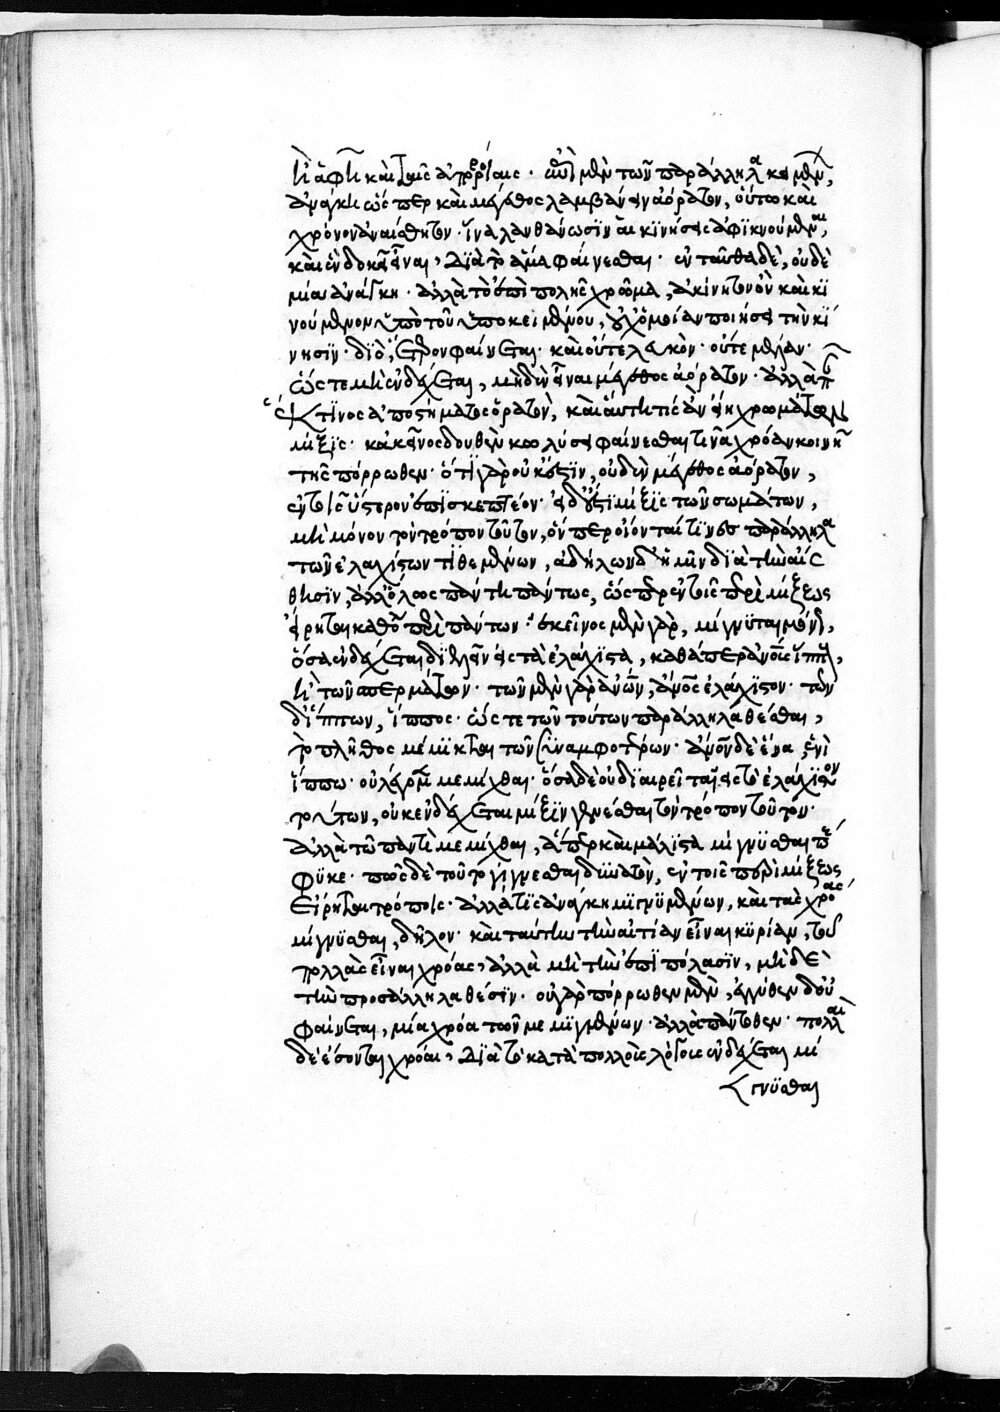 ἢ ἁφῆ καὶ ταῖς ἀπορροίαις · ἐπὶ μὲν τῶν παράλληλα κειμένων,
ἀνάγκη ὥσπερ καὶ μέγεθος λαμβάνειν ἀόρατον, οὕτω καὶ
χρόνον ἀναίσθητον · ἵνα λανθάνωσιν αἱ κινήσεις ἀφικνούμεναι,
καὶ ἓν δοκῆ εἶναι, διὰ τὸ ἅμα φαίνεσθαι · ἐνταῦθα δὲ, οὐδὲ
μία ἀνάγκη · ἀλλὰ τὸ ἐπὶ πολῆς χρῶμα, ἀκίνητον ὂν καὶ κι
νούμενον ὑπὸ τοῦ ὑποκειμένου, οὐχ ὁμοίαν ποιήσει τὴν κί
νησιν · διὸ, ἕτερον φαίνεται · καὶ οὔτε λευκὸν · οὔτε μέλαν ·
ὥστε μὴ ἐνδέχεται, μηδὲν εἶναι μέγεθος ἀόρατον · ἀλλὰ πᾶν
ἔκ τινος ἀποστήματος ὁρατὸν, καὶ αὕτη τὶς ἂν εἴη χρωμάτων
μίξις · κἀκείνως δ' οὐθὲν κωλύσει φαίνεσθαι τινὰ χρόαν κοινὴν
τῆς πόρρωθεν · ὅτι γὰρ οὐκ ἔστιν, οὐδὲν μέγεθος ἀόρατον,
ἐν τοῖς ὕστερον ἐπισκεπτέον · εἰ δ' ἔστι μίξις τῶν σωμάτων,
μὴ μόνον τὸν τρόπον τοῦτον, ὅνπερ οἴονταί τινες παράλληλα
τῶν ἐλαχίστων τιθεμένων, ἀδήλων δ' ἡμῖν διὰ τὴν αἴσ
θησιν, ἀλλ' ὅλως πάντη πάντως, ὥσπερ ἐν τοῖς περὶ μίξεως
εἴρηται καθόλου περὶ πάντων · ἐκείνως μὲν γὰρ, μίγνυται μόνον,
ὅσα ἐνδέχεται διελεῖν εἰς τὰ ἐλάχιστα, καθάπερ ἀνοῖς ἵππους,
ἢ τῶν σπερμάτων · τῶν μὲν γὰρ ἀνῶν, ἄνος ἐλάχιστον · τῶν
δ' ἵππων, ἵππος · ὥστε τῶν τούτων παράλληλα θέσθαι,
τὸ πλῆθος μέμικται τῶν συναμφοτέρων · ἄνον δὲ ἕνα, ἑνὶ
ἵππω · οὐ λέγομεν μεμίχθαι · ὅσα δὲ οὐ διαιρεῖται εἰς τὸ ἐλάχιστον
τούτων, οὐκ ἐνδέχεται μίξιν γενέσθαι τὸν τρόπον τοῦτον ·
ἀλλὰ τῶ πάντη μεμίχθαι, ἅπερ καὶ μάλιστα μίγνυσθαι πέ
φυκε · πῶς δὲ τοῦτο γίγνεσθαι δυνατὸν, ἐν τοῖς περὶ μίξεως
εἴρηται τρόποις · ἀλλ' ὅτι ἀνάγκη μιγνυμένων, καὶ τὰς χρόας
μίγνυσθαι, δῆλον · καὶ ταύτην τὴν αἰτίαν εἶναι κυρίαν, τοῦ
πολλὰς εἶναι χρόας, ἀλλὰ μὴ τὴν ἐπιπόλασιν, μὴ δὲ
τὴν προσάλληλα θέσιν · οὐ γὰρ πόρρωθεν μὲν, ἐγγύθεν δ' οὐ
φαίνεται, μία χρόα τῶν μεμιγμένων · ἀλλὰ πάντοθεν · πολλαὶ
δὲ ἔσονται χρόαι, διὰ τὸ κατὰ πολλοὺς λόγους ἐνδέχεται μί
γνυσθαι